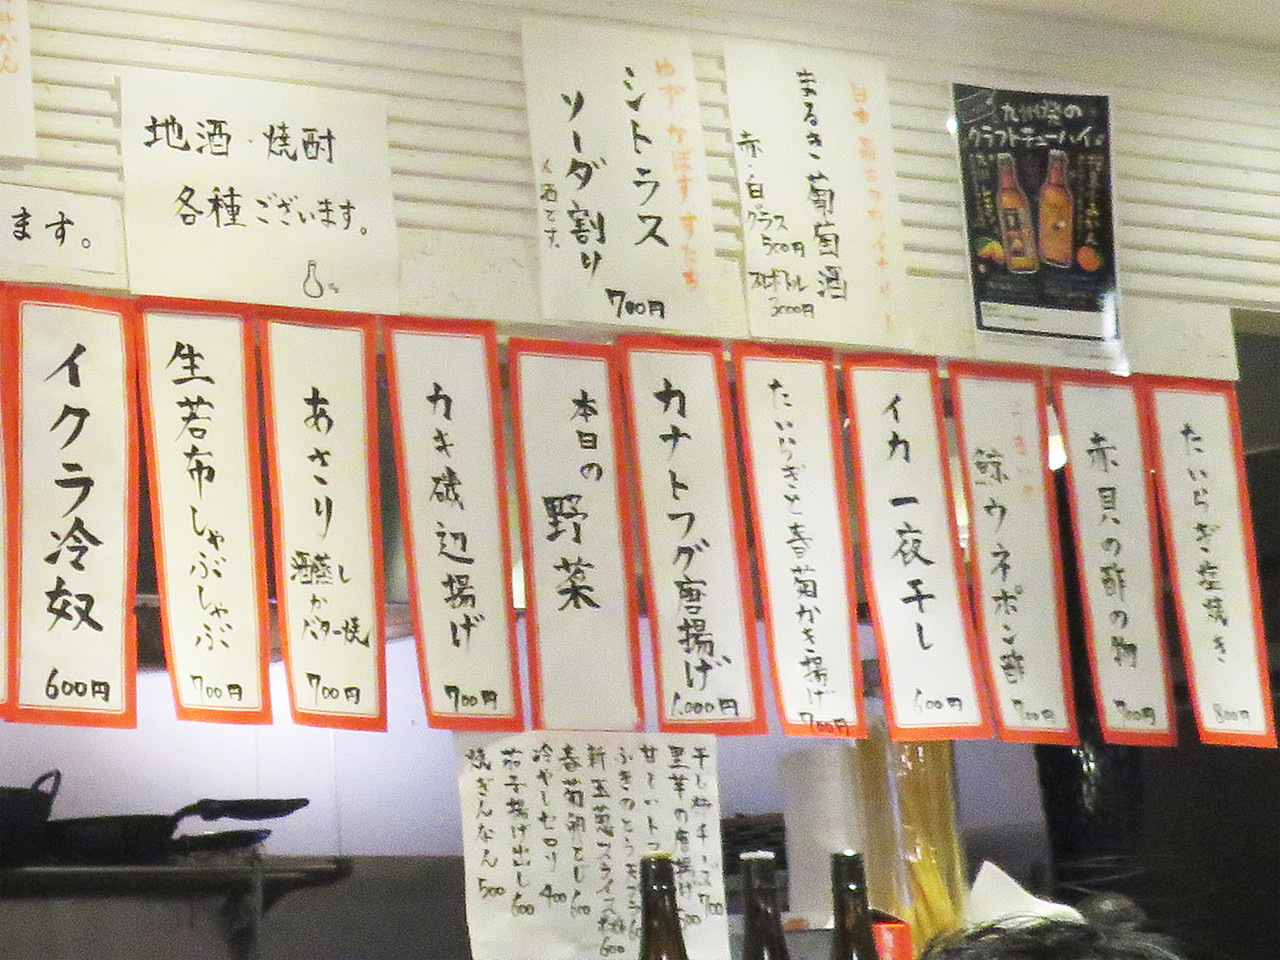 みかん
ます。
地酒・焼酎
各種ございます。
ゆず かぼす すだち
シトラス
ソーダ割り
700円
まるき葡萄酒
赤・白
グラス
500円
ボトル
3000円
九州発の
クラフトチューハイ。
たいらぎ塩焼き
800円
赤貝の酢の物
700円
うまい
鯨ウネポン酢
700円
イカ一夜干し
600円
たいらぎと春菊かき揚げ
700円
カナトフグ唐揚げ
1,000円
本日の
野菜
カキ磯辺揚げ
700円
あさり
酒蒸し
か
バター焼
700円
生若布しゃぶしゃぶ
700円
イクラ冷奴
600円
干し柿チーズ 700
里芋の唐揚げ
新玉葱スライス
600
春菊卵とじ 600
冷やしセロリ 400
茄子揚げ出し 600
焼ぎんなん 500